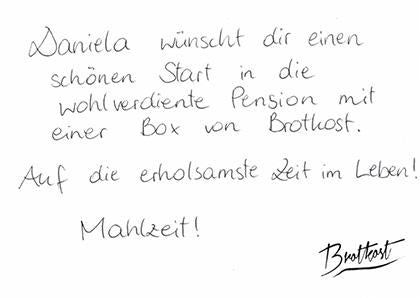 Daniela wünscht dir einen
schönen Start in die
wohlverdiente Pension mit
einer Box von Brotkost.
Auf die erholsamste Zeit im Leben!
Mahlzeit!
Brotkost